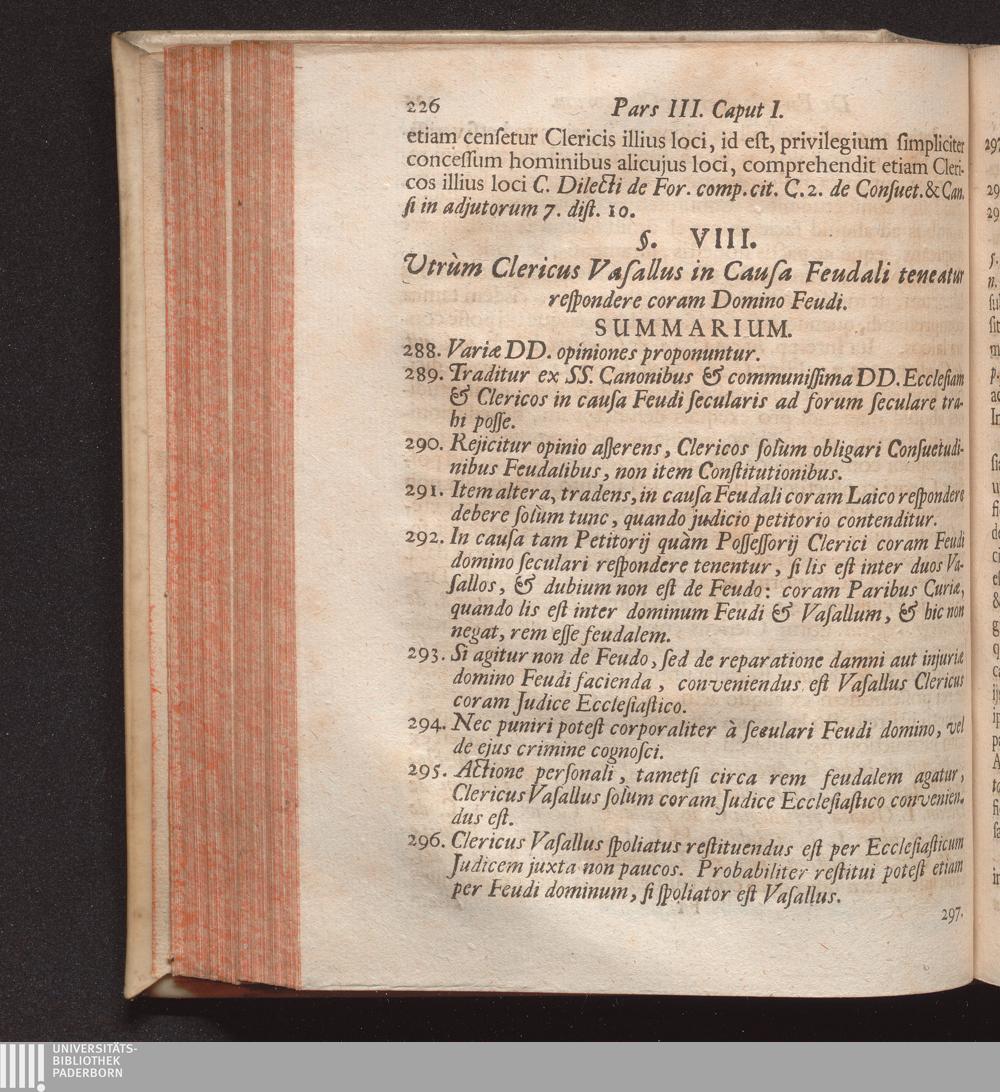 226 Pars III. Caput I.
etiam censetur Clericis illius loci, id est, privilegium simpliciter
concessum hominibus alicujus loci, comprehendit etiam Cleri-
cos illius loci C. Dilecti de For. comp. cit. C. 2. de Consuet. & Can.
si in adjutorum 7. dist. 10.
§. VIII.
Utrùm Clericus Vasallus in Causa Feudali teneatur
respondere coram Domino Feudi.
SUMMARIUM.
288. Variæ DD. opiniones proponuntur.
289. Traditur ex SS. Canonibus & communissima DD. Ecclesiam
& Clericos in causa Feudi secularis ad forum seculare tra-
hi posse.
290. Rejicitur opinio asserens, Clericos solùm obligari Consuetudi-
nibus Feudalibus, non item Constitutionibus.
291. Item altera, tradens, in causa Feudali coram Laico respondere
debere solùm tunc, quando judicio petitorio contenditur.
292. In causa tam Petitorij quàm Possessorij Clerici coram Feudi
domino seculari respondere tenentur, si lis est inter duos Va-
sallos, & dubium non est de Feudo: coram Paribus Curiæ,
quando lis est inter dominum Feudi & Vasallum, & hic non
negat, rem esse feudalem.
293. Si agitur non de Feudo, sed de reparatione damni aut injuriæ
domino Feudi facienda, conveniendus est Vasallus Clericus
coram Judice Ecclesiastico.
294. Nec puniri potest corporaliter à seculari Feudi domino, vel
de ejus crimine cognosci.
295. Actione personali, tametsi circa rem feudalem agatur,
Clericus Vasallus solum coram Judice Ecclesiastico convenien-
dus est.
296. Clericus Vasallus spoliatus restituendus est per Ecclesiasticum
Judicem juxta non paucos. Probabiliter restitui potest etiam
per Feudi dominum, si spoliator est Vasallus.
297.
UNIVERSITÄTS-
BIBLIOTHEK
PADERBORN